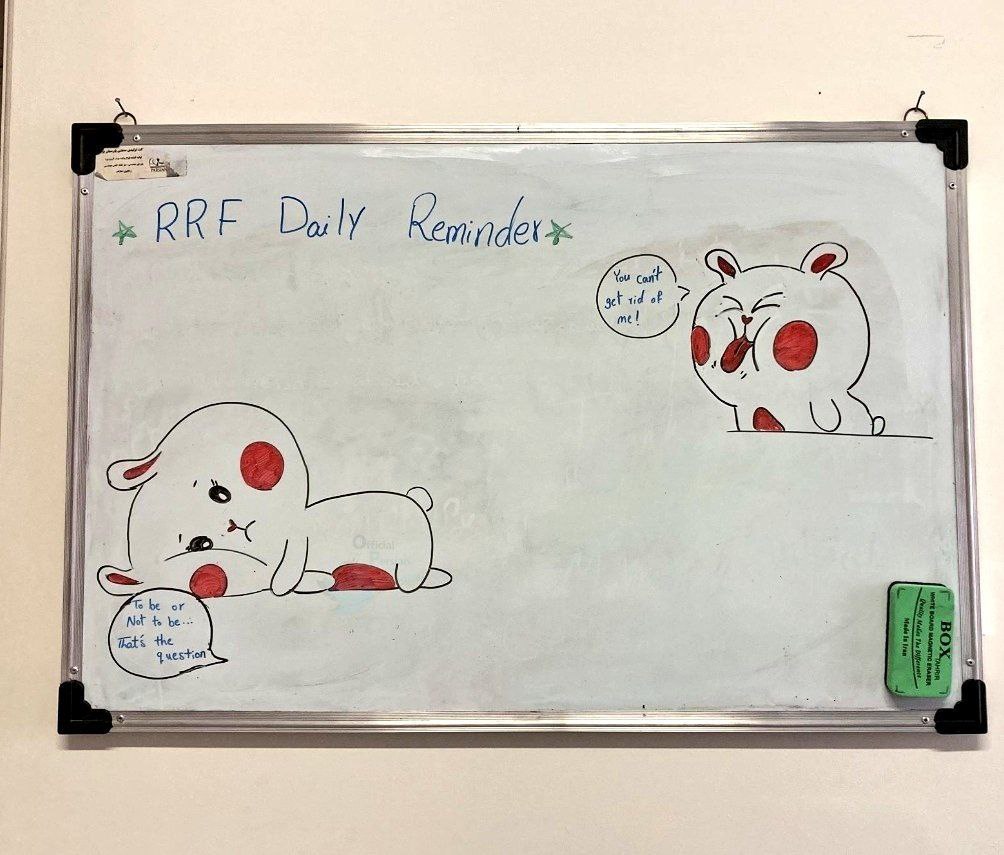 RRF Daily Reminder
You can't
get rid of
me!
To be or
Not to be...
That's the
question
Official
BOX
TAHRIR
WHITE BOARD MAGNETIC ERASER
Quality Makes The Difference
Made In Iran